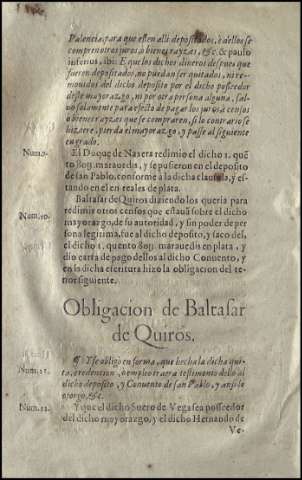 Palencia, para que esten alli depositados, o dellos se
comprenotros juros, o bienes rayzes, &c. & paulo
inferius, ibi: E que los dichos dineros despues que
fueren depositados, no puedan ser quitados, ni re-
mouidos del dicho deposito por el dicho posseedor
deste mayorazgo, ni por otra persona alguna, sal-
uo solamente para efecto de pagar los juros, o censos
o bienes rayzes que se compraren, si lo contrario se
hiziere, pierda el mayorazgo, y passe al siguiente
en grado.
Num.9.
El Duque de Naxera redimio el dicho 1. quẽ
to maraueda, y se pusieron en el deposito
de san Pablo, conforme à la dicha clausula, y es-
tando en el en reales de plata.
Num.10.
Baltasar de Quiros diziendo los queria para
redimir otros censos que estauã sobre el dicho
mayorazgo, de su autoridad, y sin poder de per
sona legitima, fue al dicho deposito, y saco del,
el dicho 1. quento maraueda en plata, y
dio carta de pago dellos al dicho Conuento, y
en la dicha escritura hizo la obligacion del te-
nor siguiente.
Obligacion de Baltasar
de Quiros.
Num.11.
¶ Y se obligò en forma, que hecha la dicha qui-
ta, e redencion, o empleo traera testimonio dello al
dicho deposito, y Conuento de san Pablo, y ansi lo
otorgo, &c.
Num.12.
Y que el dicho Suero de Vega sea posseedor
del dicho mayorazgo, y el dicho Hernando de
Ve-